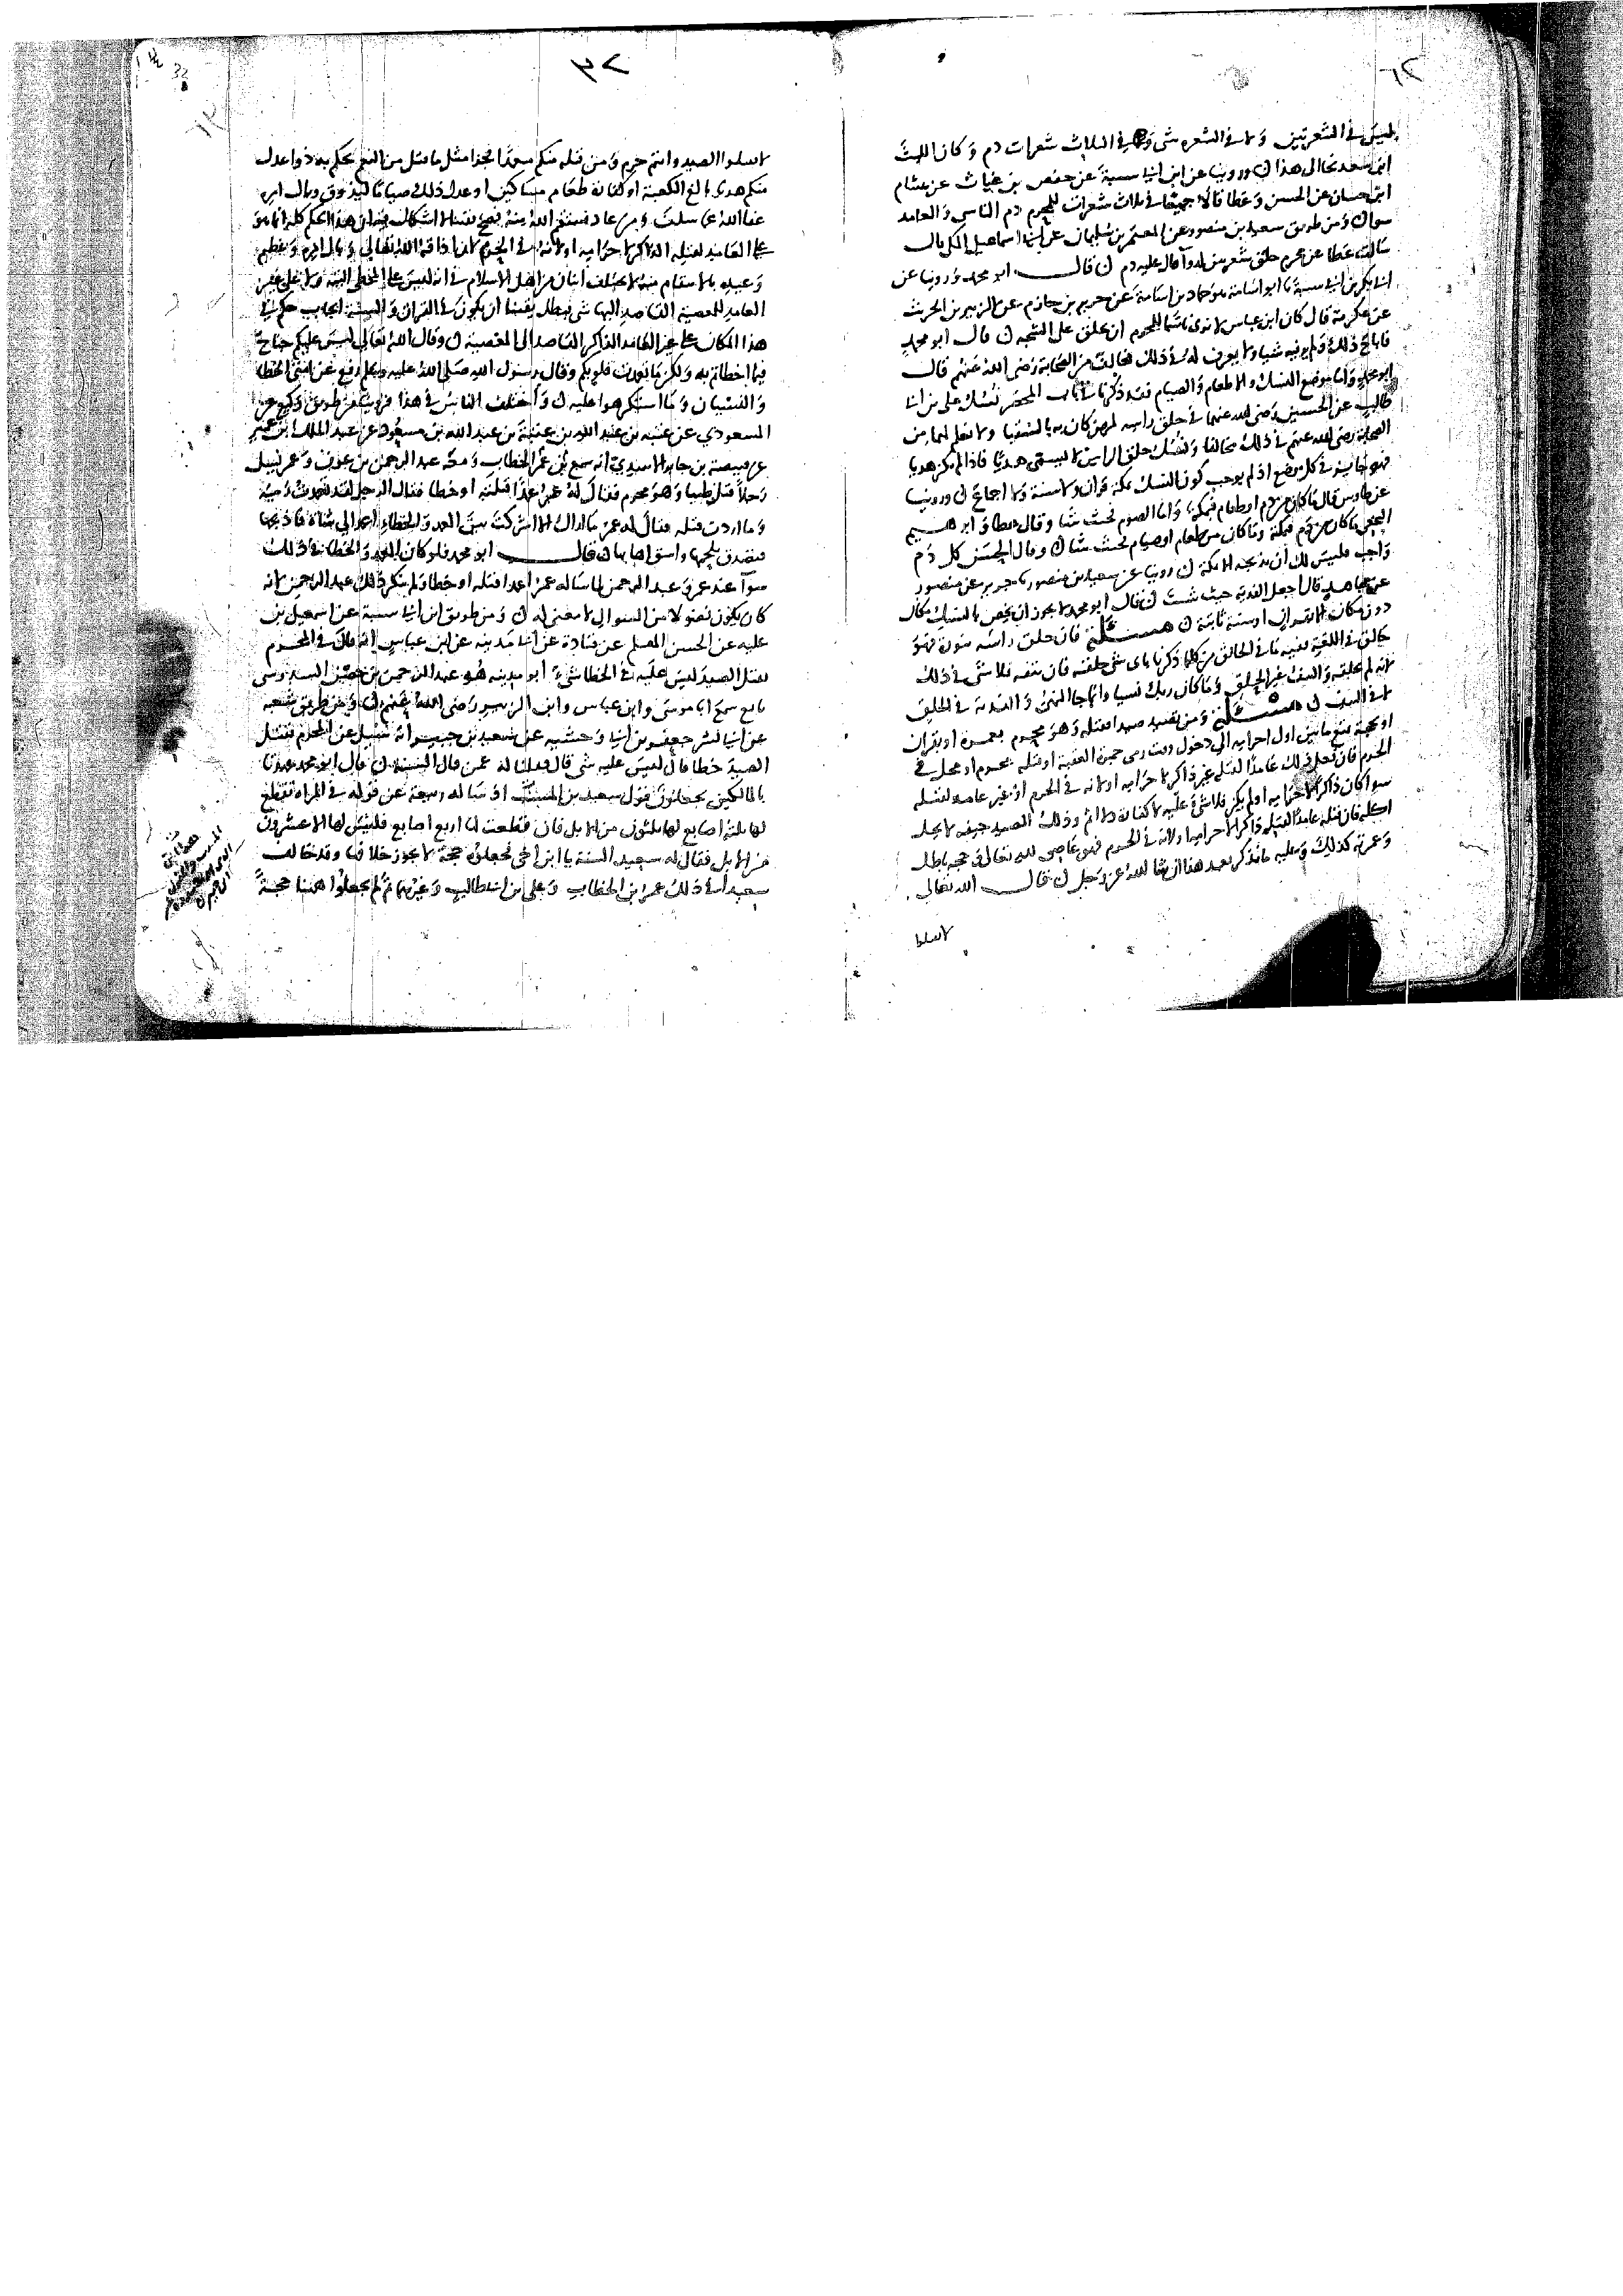 ليس في الشعرتين ولا في الشعره شى وفي الثلاث شعرات دم وكان الليث
ابن سعد نحا الى هذا ن وروينا عن ابن ابي شيبة عن حفص بن غياث عن هشام
ابن حسان عن الحسن وعطا قالا جميعا في ثلاث شعرات للمحرم دم الناسي والعامد
سوا ن ومن طريق سعيد بن منصور عن المعتمر بن سليمان عن اسماعيل المكي قال
سالت عطا عن محرم حلق شعرتين لدوا قال عليه دم ن قال ابو محمد وروينا عن
ابي بكر بن ابي شيبة نا ابو اسامة هو حماد بن اسامة عن جرير بن حازم عن الزبير بن الخريت
عن عكرمة قال كان ابن عباس لا يرى باسا للمحرم ان يحلق عن الشجه ن قال ابو محمد
فاباح ذلك ولم ير فيه شيا ولا يعرف له في ذلك مخالف من الصحابة رضى الله عنهم قال
ابو محمد واما موضع النسك والاطعام والصيام فقد ذكرنا في باب المحصر نسك على بن ابي
طالب عن الحسين رضى الله عنهما في حلق راسه لمرض كان به بالسقيا ولا نعلم لهما من
الصحابة رضى الله عنهم في ذلك مخالفا ونسك حلق الراس لا يسمى هديا فاذا لم يكن هديا
فهو جايز في كل موضع اذ لم يوجب كون النسك بمكة قران ولا سنة ولا اجماع ن وروينا
عن طاوس قال ما كان من دم او طعام فبمكة واما الصوم فحيث شا وقال عطا وابرهيم
النخعى ما كان من دم فبمكة وما كان من طعام او صيام فحيث شا ن وقال الحسن كل دم
واجب فليس لك ان تذبحه الا بمكة ن روينا عن سعيد بن منصور نا جرير عن منصور
عن مجاهد قال اجعل الفدية حيث شئت ن قال ابو محمد لا يجوز ان يخص بالنسك مكان
دون مكان الا بقران او سنة ثابتة ن مسئلة فان حلق راسه بنورة فهو
حالق في اللغة ففيه ما في الحالق من كل ما ذكرنا باى شى حلقه فان نتفه فلا شى في ذلك
لانه لم يحلقه والنتف غير الحلق وما كان ربك نسيا وانما جا النهى والفدية في الحلق
لا في النتف ن مسئلة ومن تصيد صيدا فقتله وهو محرم بعمرة او بقران
او بحجة تمتع ما بين اول احرامه الى دخول وقت رمى جمرة العقبة او قتله محرم او محل في
الحرم فان فعل ذلك عامدا لقتله غير ذاكر لاحرامه او لانه في الحرم او غير عامد لقتله
سوا كان ذاكرا لاحرامه او لم يكن فلا شى عليه لا كفارة ولا اثم وذلك الصيد جيفة لا يحل
اكله فان قتله عامدا لقتله ذاكرا لاحرامه او لانه في الحرم فهو عاصى لله تعالى وحجه باطل
وعمرته كذلك وعليه ما نذكر بعد هذا ان شا الله عز وجل ن قال الله تعالى
لا تقتلوا
٣٢
لا تقتلوا الصيد وانتم حرم ومن قتله منكم متعمدا فجزا مثل ما قتل من النعم يحكم به ذوا عدل
منكم هديا بالغ الكعبة او كفارة طعام مساكين او عدل ذلك صياما ليذوق وبال امره
عفا الله عما سلف ومن عاد فينتقم الله منه فصح يقينا لا اشكال فيه ان هذا الحكم كله انما هو
على العامد لقتله الذاكر لاحرامه او لانه في الحرم لان اذاقة الله تعالى وبال الامر وعظيم
وعيده بالانتقام منه لا يختلف اثنان من اهل الاسلام في انه ليس على المخطى البتة ولا على غير
العامد للمعصية القاصد اليها شى فبطل يقينا ان يكون في القران والسنة ايجاب حكم في
هذا المكان على غير العامد الذاكر القاصد الى المعصية ن وقال الله تعالى ليس عليكم جناح
فيما اخطاتم به ولكن ما تعمدت قلوبكم وقال رسول الله صلى الله عليه وسلم رفع عن امتى الخطا
والنسيان وما استكرهوا عليه ن واختلف الناس في هذا فروينا من طريق وكيع عن
المسعودي عن عتبة بن عبد الله بن عتبة بن عبد الله بن مسعود عن عبد الملك بن عمير
عن قبيصة بن جابر الاسدي انه سمع عمر بن الخطاب ومعه عبد الرحمن بن عوف وعمر يسل
رجلا قتل ظبيا وهو محرم فقال له عمر عمدا قتلته او خطا فقال الرجل لقد تعمدت رميه
وما اردت قتله فقال له عمر ما اراك الا اشركت بين العمد والخطاء اعمد الى شاة فاذبحها
فتصدق بلحمها واسق اهابها ن قال ابو محمد فلو كان العمد والخطا في ذلك
سوا عند عمر وعبد الرحمن لما ساله عمر اعمدا قتله او خطا ولم ينكر ذلك عبد الرحمن لانه
كان يكون فضولا من السوال لا معنى له ن ومن طريق ابن ابي شيبة عن اسمعيل بن
عليه عن الحسن المعلم عن قتادة عن ابي مدينه عن ابن عباس انه قال في المحرم
يقتل الصيد ليس عليه في الخطا شى ابو مدينه هو عبد الله بن حصن السدوسى
تابع سمع ابا موسى وابن عباس وابن الزبير رضى الله عنهم ن ومن طريق شعبه
عن ابي بشر جعفر بن ابي وحشيه عن سعيد بن جبير انه سئل عن المحرم يقتل
الصيد خطا قال ليس عليه شى قال فقلنا له عمن قال السنة ن قال ابو محمد عهدنا
بالمالكيين يجعلون قول سعيد بن المسيب اذ ساله ربيعة عن قوله في المراة تقطع
لها ثلاثة اصابع لها ثلثون من الابل فان قطعت لها اربع اصابع فليس لها الا عشرون
من الابل فقال له سعيد السنة يا ابن اخى فجعلوه حجة لا يجوز خلافها وقد خالف
سعيدا في ذلك عمر بن الخطاب وعلى بن ابي طالب وغيرهما ثم لم يجعلوا ههنا حجة